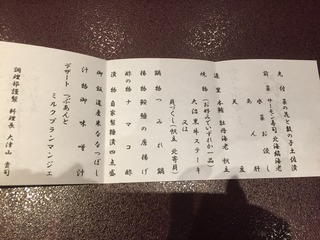 先付 菜の花と数の子土佐漬
前菜 サーモン寿司 北海縞海老
水菜お浸し
造里 本鮪 牡丹海老 帆立
焼物 (お好みでいずれか一品)
大沼黒牛ステーキ
又は
貝づくし(帆立 北寄貝)
鍋物 つみれ鍋
揚物 鮟鱇の唐揚げ
酢の物 ナマコ酢
漬物 自家製麹漬四点盛
御飯 道産米ななつぼし
汁物 御味噌汁
デザート つぶあんと
ミルクブランマンジェ
調理部謹製 料理長 大津山貴司